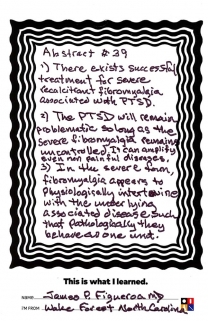 Abstract #39
1) There exists successful
treatment for severe
recalcitrant fibromyalgia
associated with PTSD.
2) The PTSD will remain
problematic so long as the
severe fibromyalgia remains
uncontrolled. It can amplify
even non painful diseases.
3) In the severe form,
fibromyalgia appears to
physiologically intertwine
with the underlying
associated disease such
that pathologically they
behave as one unit.
This is what I learned.
NAME James P. Figueroa MD
I'M FROM Wake Forest North Carolina